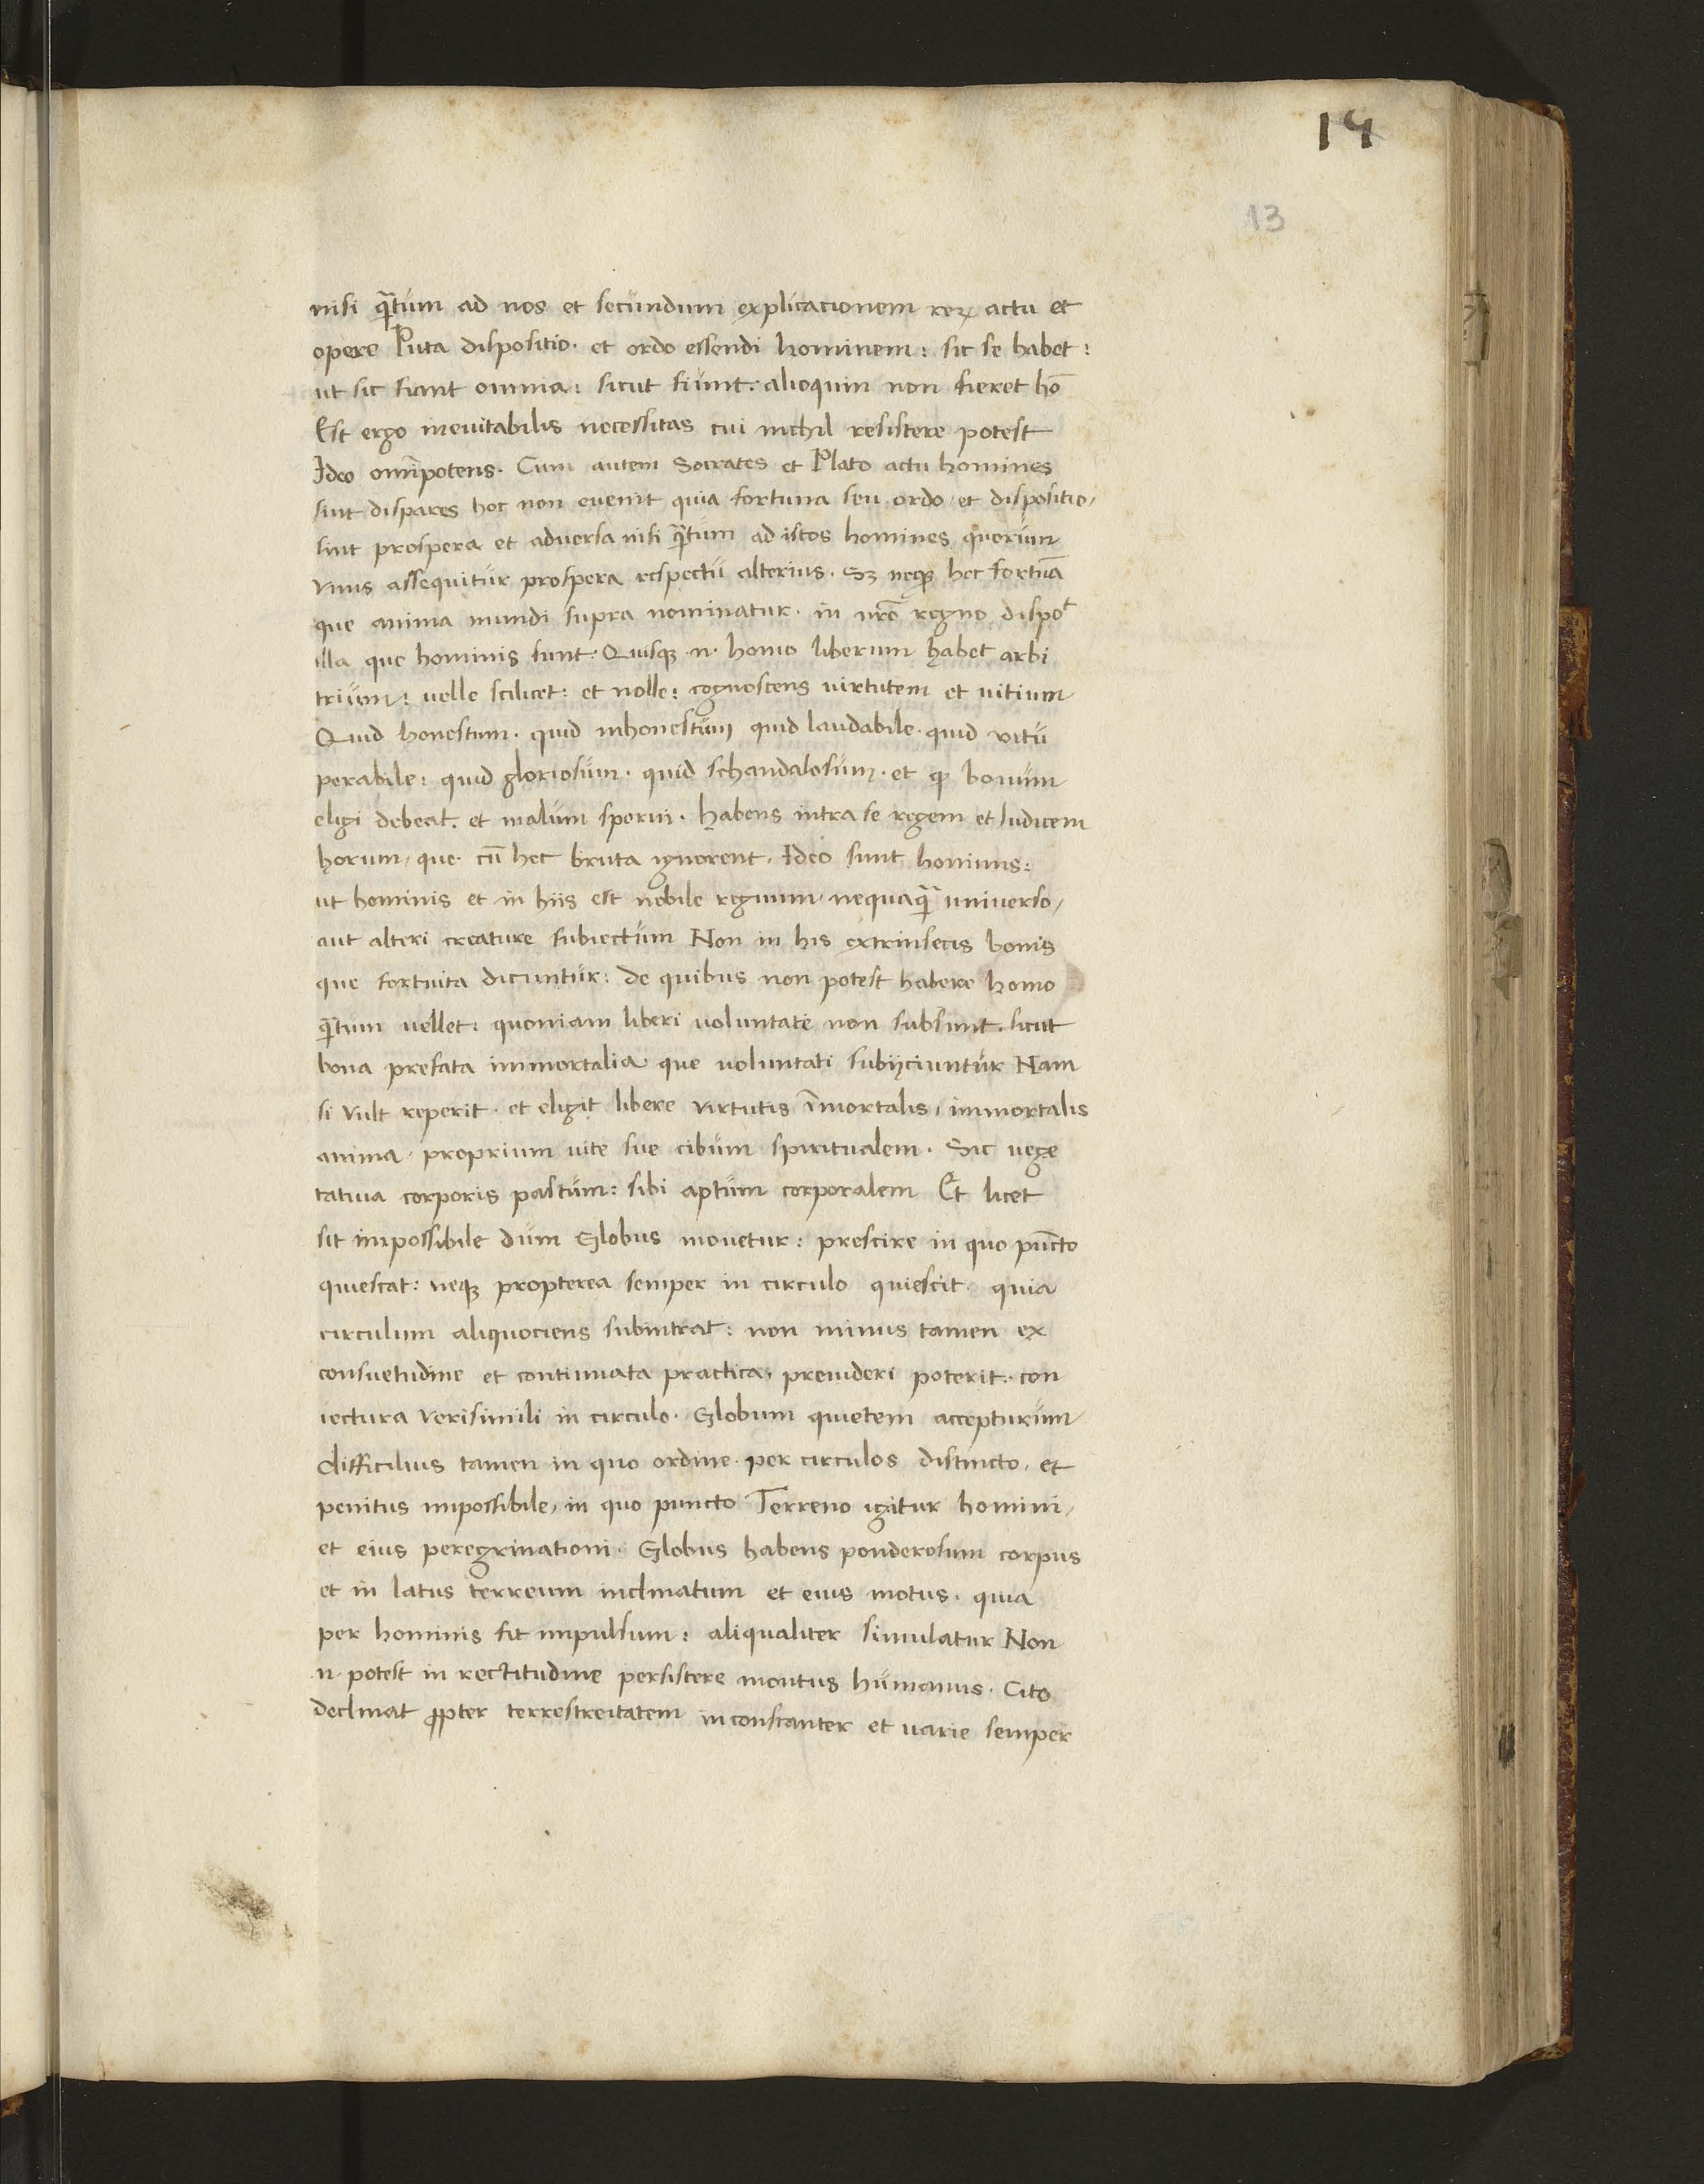 14
13
nisi q̃tum ad nos et secundum explicacionem reꝝ actu et
opere Puta dispositio· et ordo essendi hominem: sic se habet:
ut sic fiant omnia: sicut fiunt: alioquin non fieret hō
Est ergo ineuitabilis necessitas cui nichil resistere potest
Ideo omīpotens· Cum autem Socrates et Plato actu homines
sint dispares hoc non euenit quia fortuna seu ordo et dispositio,
sint prospera et aduersa nisi q̃tum ad istos homines quorum
vnus assequitur prospera respectu alterius· Sꝫ neqꝫ hec fortūa
que anima mundi supra nominatur· in nr̄o regno dispoᵗ
illa que hominis sunt· Quisqꝫ ·n· homo liberum habet arbi
trium: uelle scilicet: et nolle: cognoscens virtutem et uitium
Quid honestum· quid inhonestum quid laudabile· quid vitu
perabile: quid gloriosum· quid schandalosum· et ꝙ bonum
eligi debeat· et malum sperni· habens intra se regem et Iudicem
horum, que· cū hec bruta ignorent· Ideo sunt hominis:
ut hominis et in hiis est nobile regnum nequaq̃ uniuerso,
aut alteri creature subiectum Non in his extrinsecis bonis
que fortuita dicuntur: de quibus non potest habere homo
q̃tum uellet: quoniam liberi uoluntate non subsunt· sicut
bona prefata immortalia que uoluntati subijciuntur Nam
si vult reperit· et eligit libere virtutis īmortalis, immortalis
anima· proprium uite sue cibum spiritualem· Sic uege
tatiua corporis pastum: sibi aptum corporalem Et licet
sit impossibile dum Globus mouetur: prescire in quo pūcto
quiescat: neqꝫ propterea semper in circulo quiescit· quia
circulum aliquociens subintrat: non minus tamen ex
consuetudine et continuata practica, preuideri poterit· con
iectura verisimili in circulo· Globum quietem accepturum
difficilius tamen in quo ordine· per circulos distincto, et
penitus impossibile, in quo puncto Terreno igitur homini,
et eius peregrinationi· Globus habens ponderosum corpus
et in latus terreum inclinatum et eius motus· quia
per hominis fit impulsum: aliqualiter simulatur Non
·n· potest in rectitudine persistere montus humanus· Cito
declinat ꝓpter terrestreitatem inconstanter et uarie semper